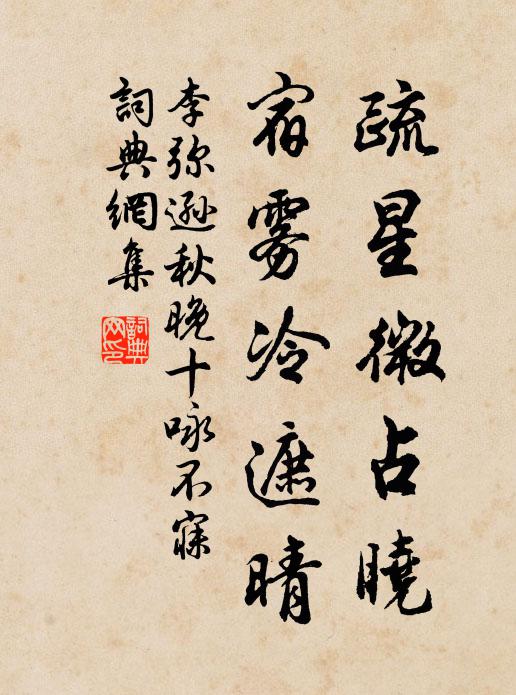 疏星微占曉
宿雾冷遮晴
李弥遜秋晚十咏不寐
詞典網集
詞典
网印